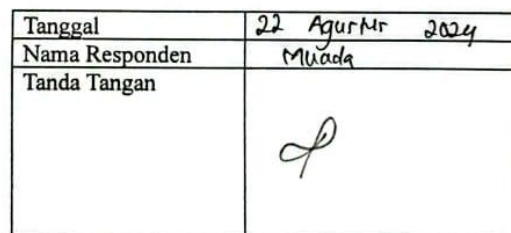 Tanggal 22 Agustus 2024
Nama Responden Muada
Tanda Tangan